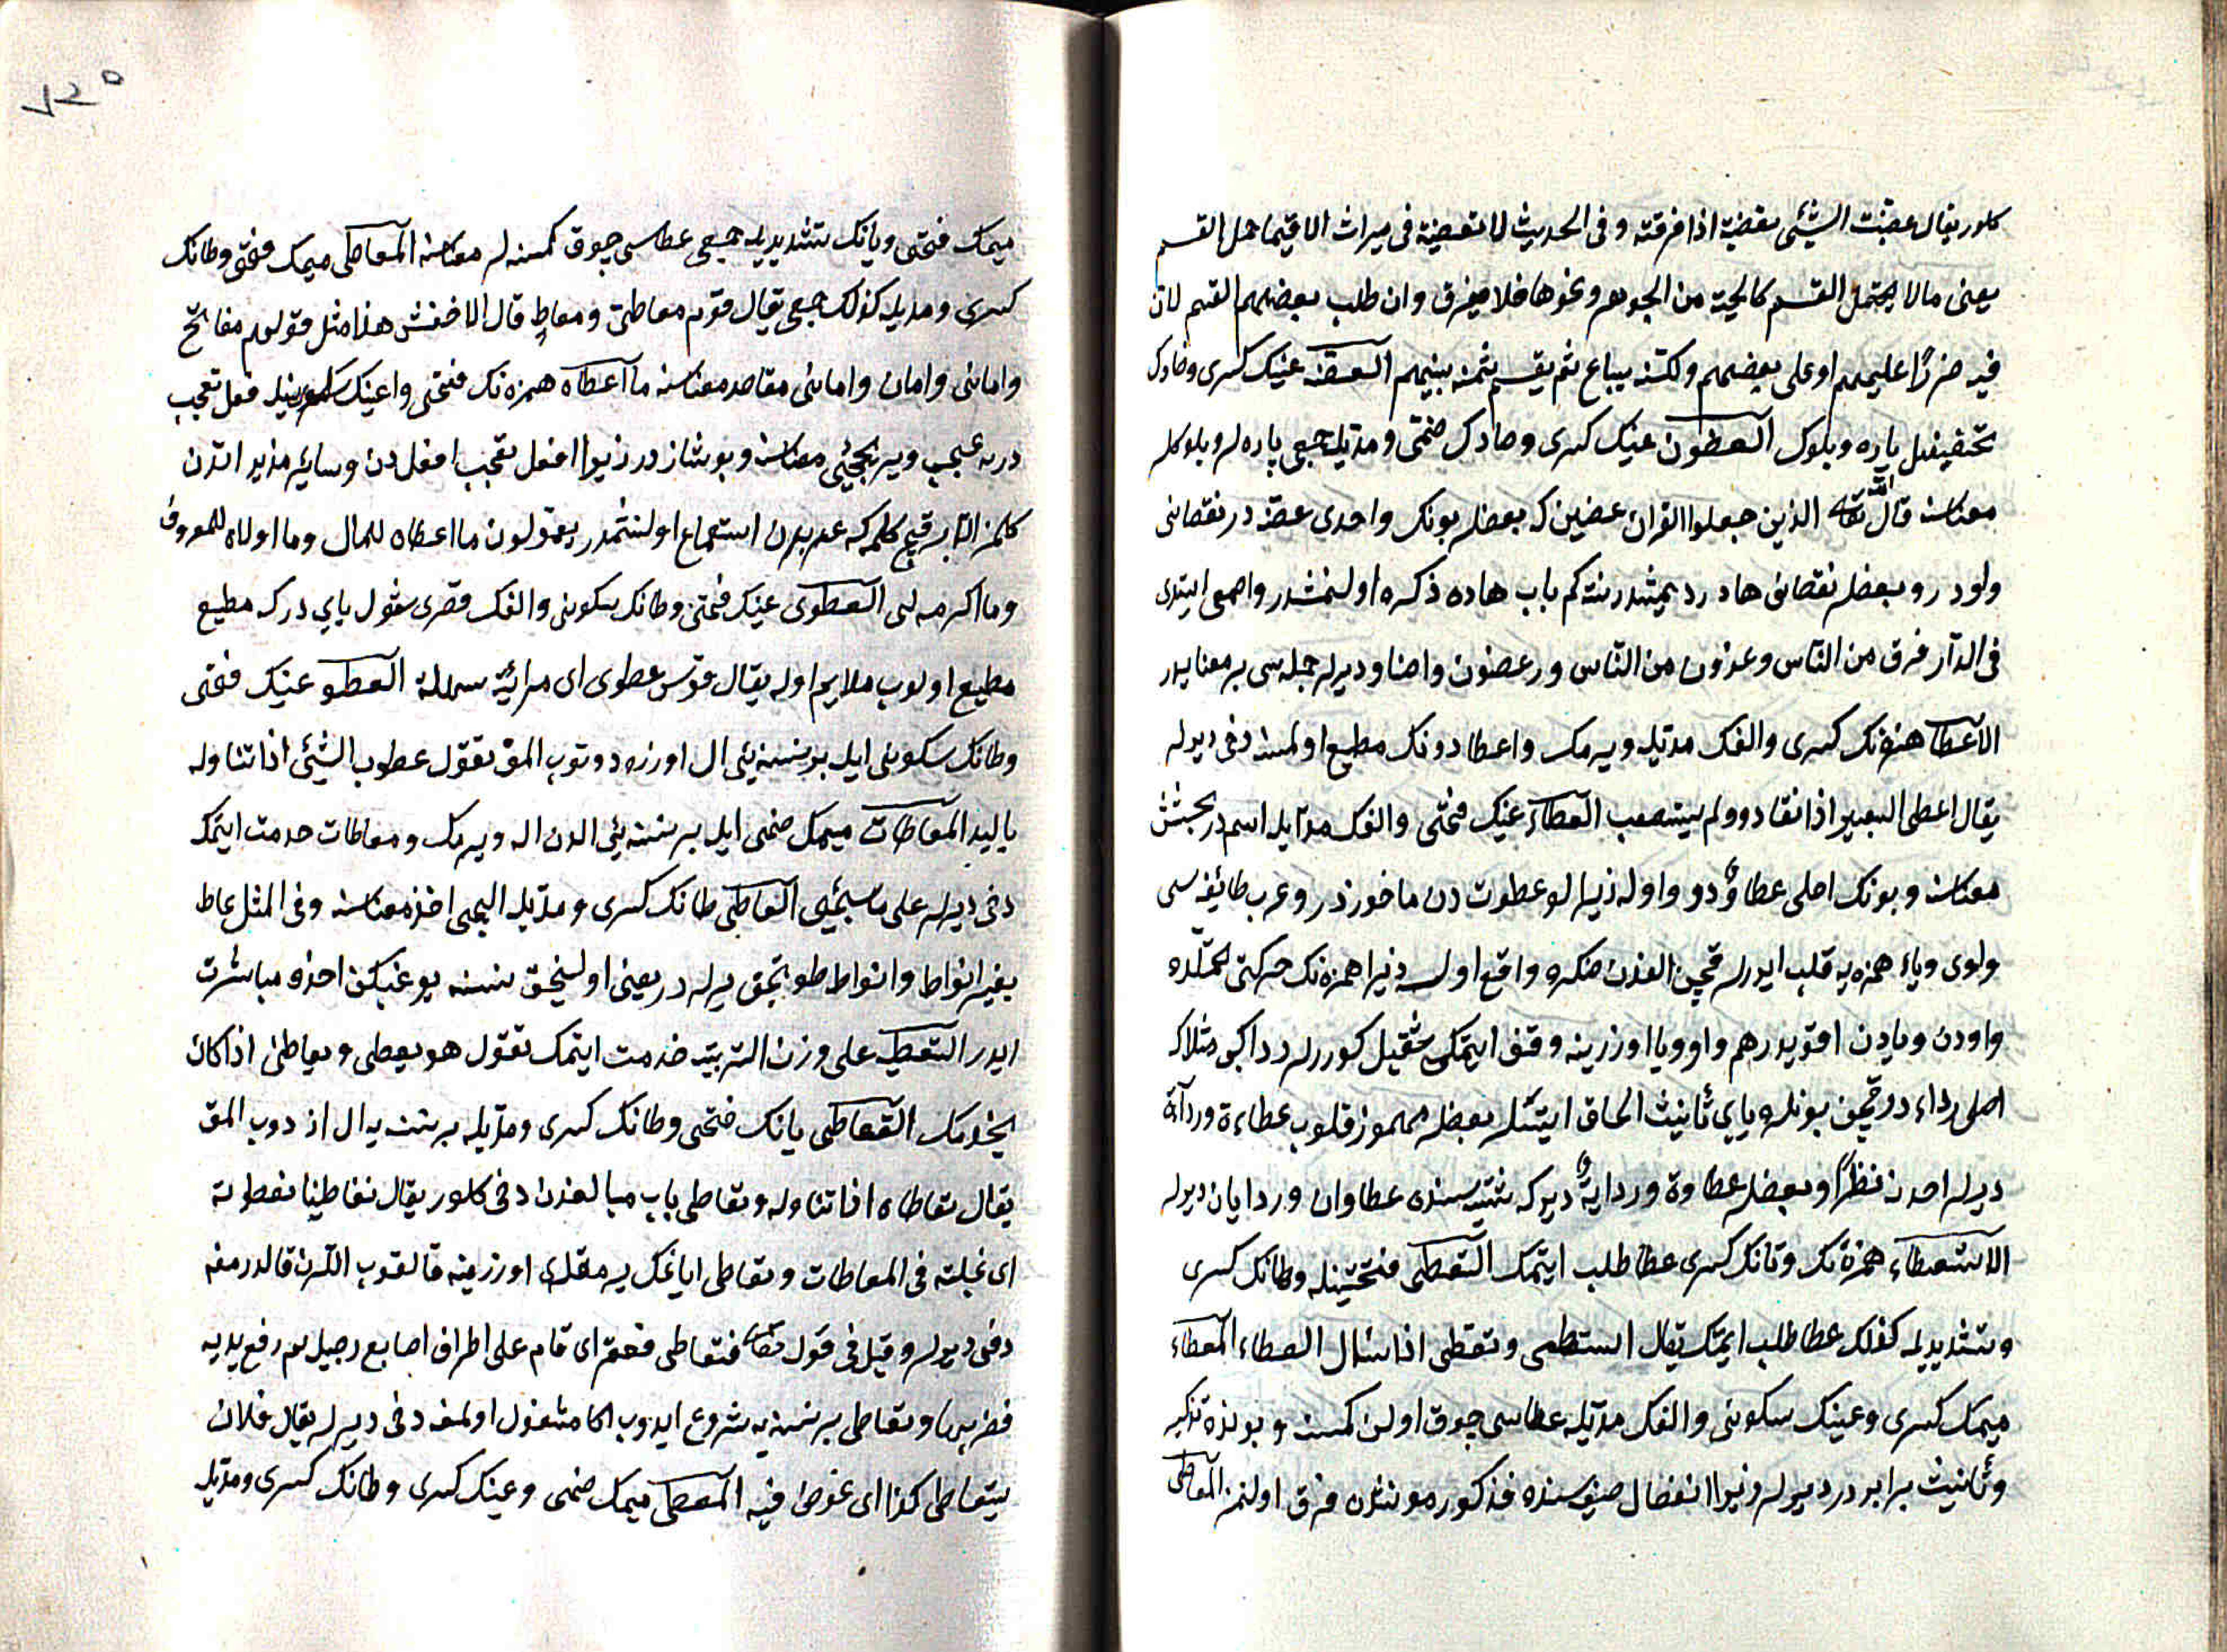 كلور يقال عضّيت الشئ تعضية اذا فرقته وفى الحديث لا تعضية فى ميراث الا فيما حمل القسم
يعنى مالا يحتمل القسم كالحبة من الجوهر ونحوها فلا يفرق وان طلب بعضهم القسم لان
فيه ضررًا عليهم او على بعضهم ولكنه يباع ثم يقسم ثمنه بينهم العضة عينك كسرى وضادك
تخفيفيله پاره وبلوك العضون عينك كسرى وضادك ضمّى ومدّيله جمعى پاره لر وبلوكلر
معناسنه قال الله تعالى الذين جعلوا القران عضين كه بعضلر بونك واحدى عضة در نقصانى
واودر وبعضلر نقصانى هادر ديمشدر نته كم باب هاده ذكره اولنمشدر واصمعى ايتدى
فى الدار فرق من الناس وعزون من الناس وعضون واصناف ديرلر جمله سى بر معنايه در
الاعطا همزه نك كسرى والفك مدّيله ويرمك واعطا دونك مطيع اولمسنه دخى ديرلر
يقال اعطى البعير اذا انقاد ولم يستصعب العطاء عينك فتحى والفك مدّيله اسمدر بخشش
معناسنه وبونك اصلى عطاوٌ دو واوله زيرا لو عطوت دن ماخوذدر وعرب طائفه سى
واوى وياء همزه يه قلب ايدرلر قچن الفدن صكره واقع اولسه زيرا همزه نك حركتى تحمّلده
واودن ويادن اقويدر هم واو ويا اوزرينه وقف ايتمكى ثقيل كوررلر ردا كبى مثلا كه
اصلى رداى در قچن بونلره ياى تأنيث الحاق ايتسلر بعضلر مهموز قلوب عطاءة ورداءة
ديرلر اصلنه نظرًا وبعضلر عطاوة وردايةٌ ديرلر كه تثنيه سنده عطاوان وردايان ديرلر
الاستعطاء همزه نك وتانك كسرى عطا طلب ايتمك التعطى فتحتينله وطانك كسرى
وتشديديله كذلك عطا طلب ايتمك يقال استعطى وتعطى اذا سأل العطاء المعطاء
ميمك كسرى وعينك سكونى والفك مدّيله عطاسى چوق اولن كمسنه وبونده تذكير
وتأنيث برابردر ديرلر زيرا انفصال صيغه سنده مذكور مونثدن فرق اولنمز المعاطى
١٢٥
ميمك فتحى ويانك تشديديله جمعى عطاسى چوق كمسنه لر معناسنه المعاطى ميمك فتحى وطانك
كسرى ومديله كذلك جمعى يقال قوم معاطىّ ومعاطٍ قال الاخفش هذا مثل قولهم مفاتح
وامانى وامان وامانى مقاصد معناسنه ما اعطاه همزه نك فتحى وعينك سكونيله فعل تعجب
در نه عجب ويريجيى معناسنه وبو شاذدر زيرا افعل تعجب افعل دن وسائر مزيداتدن
كلمز الّا برقچ كلمه كه عربدن استماع اولنمشدر يقولون ما اعطاه للمال وما اولاه للمعروف
وما اكرمه لى العطوى عينك فتحى وطانك سكونى والفك قصرى شول يايدر كه مطيع
مطيع اولوب ملايم اوله يقال قوس عطوى اى مواتية سهلة العطو عينك فتحى
وطانك سكونى ايله بر نسنه يى ال اوزره دوتوب المق تقول عطوت الشئ اذا تناوله
باليد المعاطات ميمك ضمى ايله بر نسنه يى الدن اله ويرمك ومعاطات خدمت ايتمك
دخى ديرلر على ما سيجئ التعاطى طانك كسرى ومدّيله اليجى اخذ معناسنه وفى المثل عاط
بغير انواط وانواط طوتجق يرلردر يعنى اولنيجق نسنه يوغيكن اخذه مباشرت
ايدر التعطية على وزن التربية خدمت ايتمك تقول هو يعطى ويعاطى اذا كان
يخدمك التعاطى يانك فتحى وطانك كسرى ومدّيله بر نسنه يه ال اوزدوب المق
يقال تعاطاه اذا تناوله وتعاطى باب مبالغه دن دخى كلور يقال تعاطينا فعطوته
اى غلبته فى المعاطات وتعاطى اياغك پرمقلرى اوزرينه قالقوب اللرن قالدرمغه
دخى ديرلر وقيل فى قوله تعالى فتعاطى فعقر اى قام على اطراف اصابع رجليه ثم رفع يديه
فضربها وتعاطى بر نسنه يه شروع ايدوب اكا مشغول اولمغه دخى ديرلر يقال فلان
يتعاطى كذا اى يخوض فيه المعطى ميمك ضمى وعينك كسرى وطانك كسرى ومدّيله